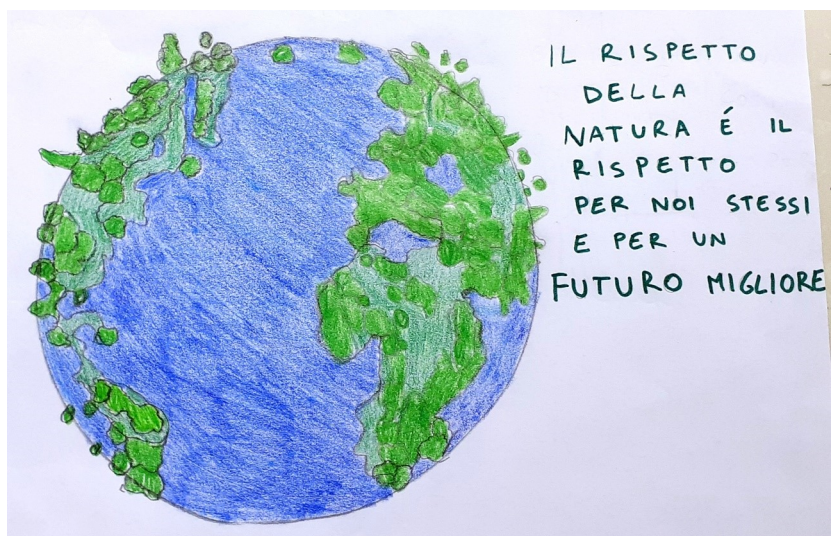 IL RISPETTO
DELLA
NATURA É IL
RISPETTO
PER NOI STESSI
E PER UN
FUTURO MIGLIORE